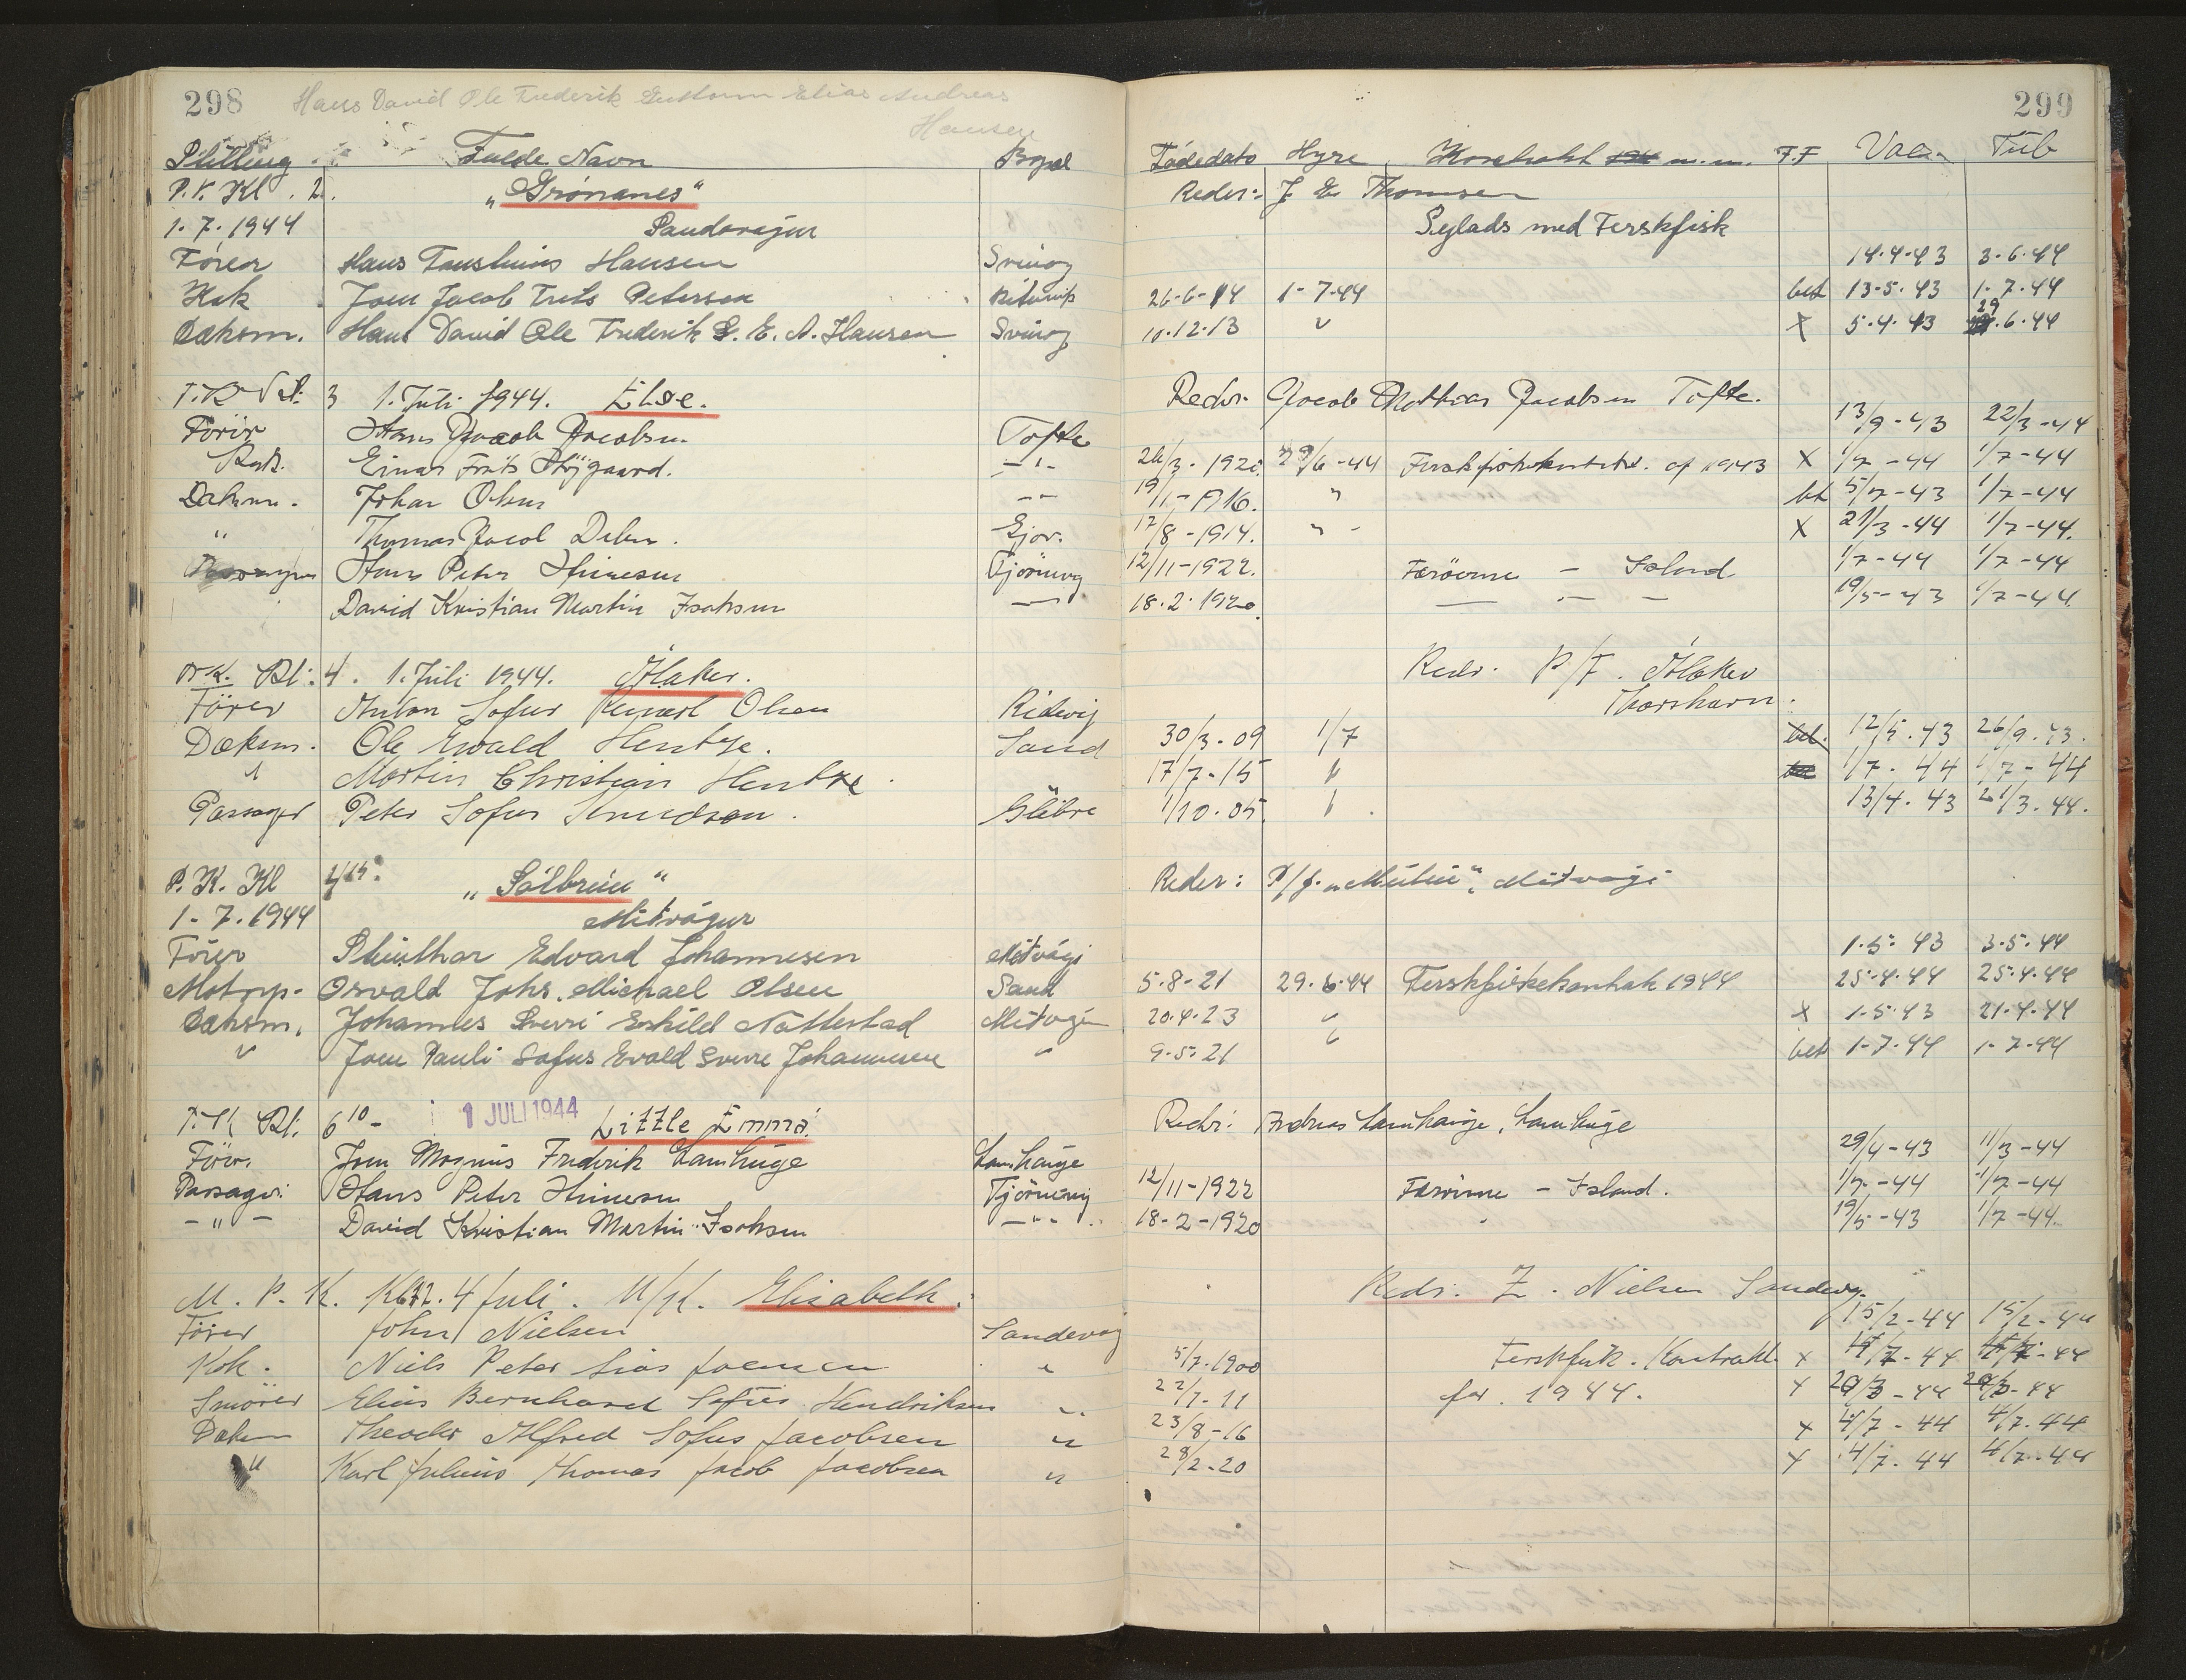 298 Hans David Ole Frederik Guttorm Elias Andreas
Hansen
299
Stilling Fulde Navn Bopæl Fødedato Hyre Kontrakt m.m. F.F Vacc. Tub
P.K. Kl. 2. "Grønanes" Reder: J E Thomsen
1.7.1944 Sandavágur Sejlads med Ferskfisk
Fører Hans Hansen Svinoy 14.4.43 3.6.44
Kok Joen Jacob Frits Petersen 26-6-14 1-7-44 bet 13-5-43 1-7-44
Dæksm. Hans David Ole Frederik G. E. A. Hansen Svinoy 10.12.13 " X 5.4.43 29.6.44
3 1. Juli 1944. Else. Reder. Jacob Mathias Jacobsen Tofte.
Fører Hans Jacob Jacobsen Tofte 13/9-43 22/3-44
Kok. Einar Frits Højgaard. -"- 26/3-1920 29/6-44 af 1943 X 1/7-44 1/7-44
Dæksm. Johan Olsen -"- 19/1-1916. " bet 5/7-43 1/7-44
" Thomas Jacob Gjov. 17/8-1914. " X 21/3-44 1/7-44.
Hans Peter Tjörnevig 12/11-1922. Færøerne - Island 1/7-44 1/7-44
David Kristian Martin Isaksen 18.2.1920 19/5-43 1/7-44
P.K. Kl: 4. 1. Juli 1944. Álaker. Redr. P/F. Álaker
Thorshavn.
Fører Anton Sofus Olsen Ridevij
Dæksm. Ole Ewald Hentze. Sand 30/3-09 1/7 bet. 12/5.43 26/9.43.
" Martin Christian Hentze 17/7-15 " 1/7.44 1/7-44
Passager Peter Sofus Knudsen. Glibre 1/10.05. " 13/4.43 21/3.44.
P.K. Kl "Sólbrún" Reder: P/f. Midvági
1-7.1944 Midvágur
Fører Edvard Johannesen Midvági 1.5.43 3.5.44
Motorp. Osvald Johs. Michael Olsen Sand 5.8-21 29.6.44 Ferskfiskekontrakt 1944 25.4.44 25.4.44
Dæksm. Johannes Sverri Eskild Nattestad Midvági 20.4.23 " X 1-5.43 21-4-44
" Joen Pauli Sofus Evald Sverre Johannesen " 9.5.21 " bet 1-7.44 1-7.44
P.K Kl. 6 10 - 1 JULI 1944 Little Emma. Redr: Andreas Lamhauge, Lamhauge
Fører. Joen Magnus Frederik Lamhauge Lamhauge 29/4-43 11/3-44
Passager: Hans Peter Tjörnevig 12/11-1922 Færöerne - Island. 1/7-44 1/7-44
-"- David Kristian Martin Isaksen -"- 18-2-1920 " 19/5-43 1/7-44.
M.P.K. 4 Juli. M/sk. Elisabeth. Redr. Z. Nielsen Sandevg.
Fører John Nielsen Sandevaag 15/2-44 15/2-44
Kok. Niels Peter Joensen " 5/7.1900 Ferskfisk. Kontrakt x
Smører Elias Bernhard Sofus Hendriksen " 22/7-11 for 1944. x
Dæksm Theodor Alfred Sofus Jacobsen " 23/8-16 x 4/7-44 4/7.44
" Karl Julius Thomas Jacob Jacobsen " 28/2-20 x 4/7.44 4/7-44